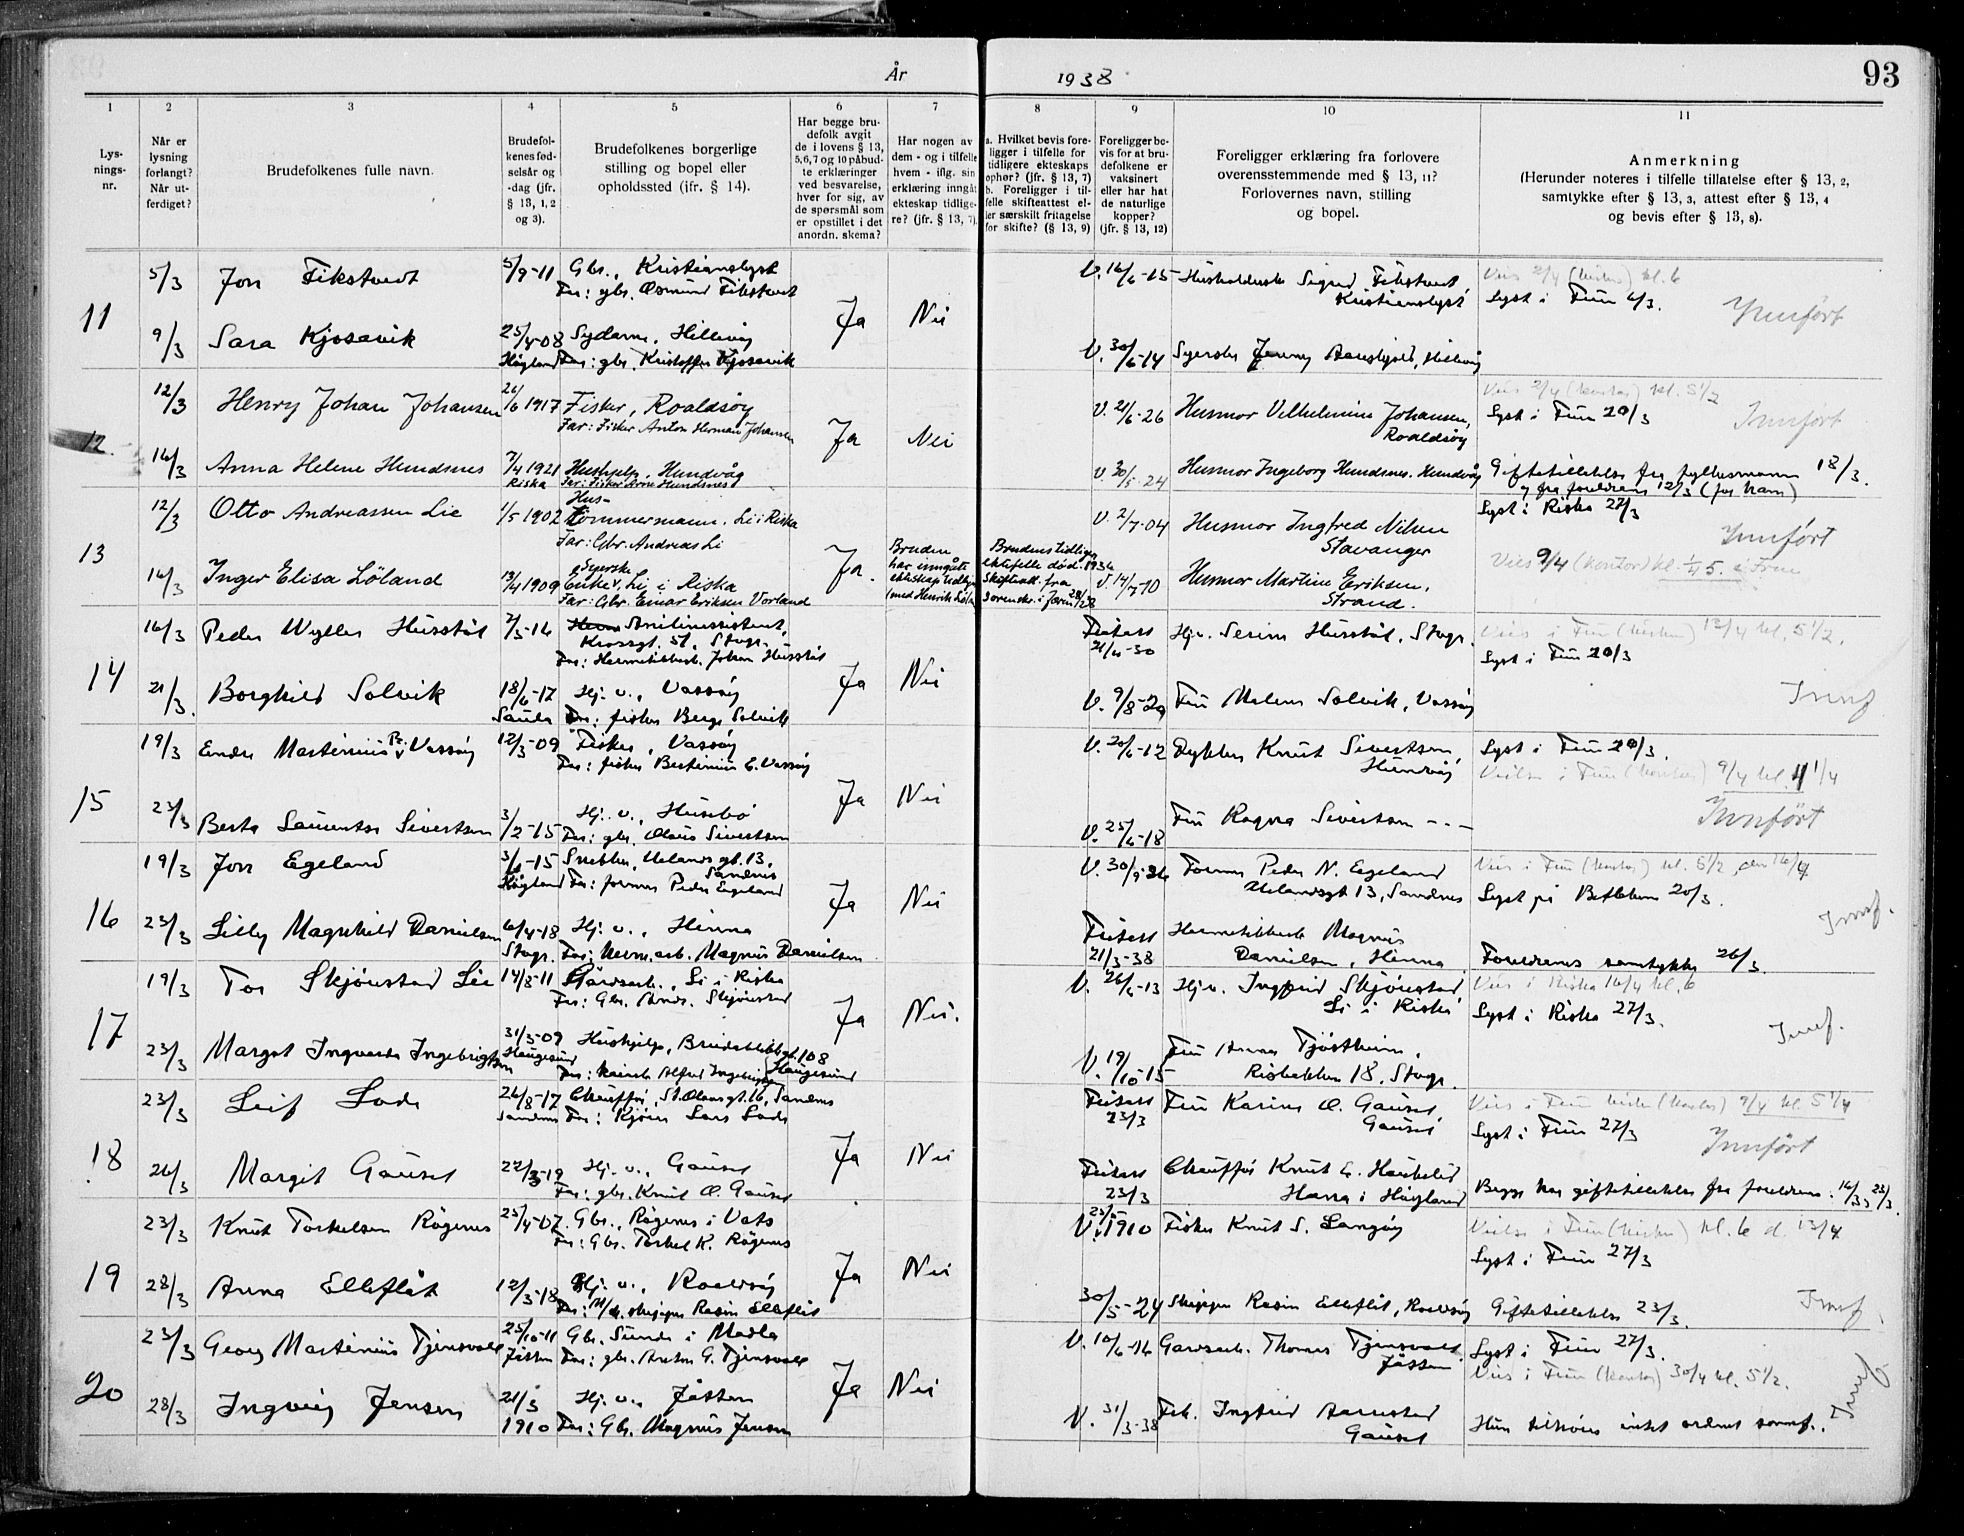 År 1938 93
1 2 3 4 5 6 7 8 9 10 11
Lys-
nings-
nr.
Når er
lysning
forlangt?
Når ut-
ferdiget?
Brudefolkenes fulle navn.
Brudefol-
kenes fød-
selsår og
-dag (jfr.
§ 13, 1, 2
og 3).
Brudefolkenes borgerlige
stilling og bopel eller
opholdssted (jfr. § 14).
Har begge bru-
defolk avgit
de i lovens § 13,
5,6,7 og 10 påbud-
te erklæringer
ved besvarelse,
hver for sig, av
de spørsmål som
er opstillet i det
anordn. skema?
Har nogen av
dem - og i tilfelle
hvem - iflg. sin
erklæring inngåt
ekteskap tidlige-
re? (jfr. § 13, 7).
a. Hvilket bevis fore-
ligger i tilfelle for
tidligere ekteskaps
ophør? (jfr. § 13, 7)
b. Foreligger i til-
felle skifteattest el-
ler særskilt fritagelse
for skifte? (§ 13, 9)
Foreligger be-
vis for at bru-
defolkene er
vaksinert
eller har hat
de naturlige
kopper?
(jfr. § 13, 12)
Foreligger erklæring fra forlovere
overensstemmende med § 13, 11?
Forlovernes navn, stilling
og bopel.
Anmerkning
(Herunder noteres i tilfelle tillatelse efter § 13, 2,
samtykke efter § 13, 3, attest efter § 13, 4
og bevis efter § 13, 8).
11
5/3 Jon Tikstvedt 5/9-11 Gbr., Kristianslyst
Far: gbr. Osmund Tikstvedt
V. 16/6-15 Husholderske Sigrid Tikstvedt,
Kristianslyst
Vies 2/4 (kirken) kl. 6
Lyst i Frue 6/3.
Innført
9/3 Sara Kjosavik 25/4-08 Sydame, Hillevåg
Høgland Far: gbr. Kristoffer Kjosavik
Ja Nei
V. 30/6-14 Syerske Jenny Hillevåg
12
12/3 Henry Johan Johansen 26/6 1917 Fisker, Roaldsøy
Far: Fisker Anton Herman Johansen
V. 21/6-26 Husmor Vilhelmine Johansen,
Roaldsøy
Vies 2/4 (kontor) kl. 5 1/2
Lyst i Frue 20/3
Innført
16/3 Anna Helene Hundsnes 7/4 1921 Hushjelp, Hundvåg
Riska Far: Fisker Arne Hundsnes
Ja Nei
V. 30/5-24 Husmor Ingeborg Hundsnes. Hundvåg
Giftetillatelse fra fylkesmann 18/3.
og fra foreldrene 12/3 (for ham)
13
12/3 Otto Andreassen Lie 1/5 1902 Hus-
tømmermann. Li i Riska
Far: Gbr. Andreas Li
V. 2/7-04 Husmor Ingfred Nilsen
Stavanger
Lyst i Riska 27/3
Innført
Vies 9/4 (kontor) kl. 1/4 5. i Frue
14/3 Inger Elisa Löland 13/4 1909 Syerske
Enke v. Li i Riska
Far: Gbr. Einar Eriksen Vorland
Ja.
Bruden
har inngått
ekteskap tidligere
(med Henrik Löland
Brudens tidligere
ektefelle død. 1936
Skifteatt. fra
sorenskr. i Jæren
V 14/7-10 Husmor Martine Eriksen,
Strand.
14
16/3 Peder Wyller Husstøl 7/3-16
Krossgt. 51, Stvgr.
Far: Hermetikkarb. Johan Husstøl
Fritatt
21/4-30 Hj.v. Serine Husstøl, Stvgr.
Vies i Frue (kirken) 13/4 kl. 5 1/2.
Lyst i Frue 20/3
21/3. Borghild Solvik 18/6-17 Hj. v., Vassøy
Sauda Far: fisker Berge Solvik
Ja Nei
V. 9/8-29 Fru Malene Solvik, Vassøy
Innf
15
19/3 Endre Martinius B. Vassøy 12/3-09 Fisker, Vassøy
Far: fisker Bertinius E. Vassøy
V. 20/6-12 Dykker Knut Sivertsen,
Hundvåg
Lyst i Frue 20/3.
Vielse i Frue (kontor) 9/4 kl. 4 1/4
Innført
23/3 Berta Lauentse Sivertsen 3/2-15 Hj. v., Husebø
Far: gbr. Olaus Sivertsen
Ja Nei
V. 25/6-18 Fru Ragna Sivertsen - - -
16
19/3 Jon Egeland 3/1-15 Snekker, Uelandsgt. 13,
Sandnes
Høgland Far: former Peder Egeland
V. 30/9-26 Former Peder N. Egeland
Uelandsgt 13, Sandnes
Vies i Frue (kontor) kl. 5 1/2, den 16/4
Lyst på Betlehem 20/3.
Innf.
23/3 Lilly Magnhild Danielsen 6/4-18 Hj. v., Hinna
Stvgr. Far: Herm.arb. Magnus Danielsen
Ja Nei
Fritatt
21/3-38 Hermetikkarb Magnus
Danielsen, Hinna
Foreldrenes samtykke 26/3.
17
19/3 Tor Skjørestad Lie 14/8-11 Gårdsarb., Li i Riska
Far: Gbr. Ands. Skjørestad
V. 26/6-13 Hj.v. Ingfrid Skjørestad
Li i Riska
Vies i Riska 16/4 kl. 6
Lyst i Riska 27/3.
Innf.
23/3 Margot Ingvarda Ingebrigtsen 31/3-09 Hushjelp, 108
Haugesund Haugesund
Far: Alfred Ingebrigtsen
Ja Nei.
V. 19/10-15 Fru Anna Tjøstheim,
Risbakken 18, Stvgr.
18
23/3 Leif Lode 26/8-17 Chauffør, St. Olavsgt. 16, Sandnes
Sandnes Far: Kjører Lars Lode
Fritatt
23/3 Fru Karine O. Gausel,
Gausel
Vies i Frue kirke (kontor) 9/4 kl. 5 1/4
Lyst i Frue 27/3
Innført
26/3 Margit Gausel 22/3-19 Hj. v., Gausel
Far: gbr. Knut O. Gausel
Ja Nei
Fritatt
23/3 Chauffør Knut E. Haukelid
Hana i Høyland
Begge har giftetillatelse fra foreldrene. 16/3, 23/3.
19
23/3 Knut Torkelsen Røgenes 25/4-07. Gbr., Røgenes i Vats
Far: Gbr. Torkel K. Røgenes
V. 1910 Fisker Knut S. Langøy
Vielse i Frue (kirken) kl. 6 d. 13/4
Lyst i Frue 27/3
28/3 Anna Elleflåt 12/3-18 Hj. v., Roaldsøy
Far: skipper Rasm Elleflåt
Ja Nei
30/5-24 Skipper Rasm Elleflåt, Roaldsøy
Giftetillatelse 23/3.
Innf
20
23/3 Georg Martinius Tjensvoll 25/10-11 Gbr. Sunde i Madla
Jåtten Far: gbr. Anton G. Tjensvoll
V. 10/6-16 Gardsarb. Thomas Tjensvoll,
Jåtten
Lyst i Frue 27/3.
Vies i Frue (kontor) 30/4 kl. 5 1/2.
Innf
28/3 Ingvieg Jensen 21/3 Hj. v., Jåtten
1910 Far: Gbr. Magnus Jensen
Ja Nei
V. 31/3-38 Frk. Ingfrid Aarrestad
Gausel
Hun tilhører intet ordnet samf.